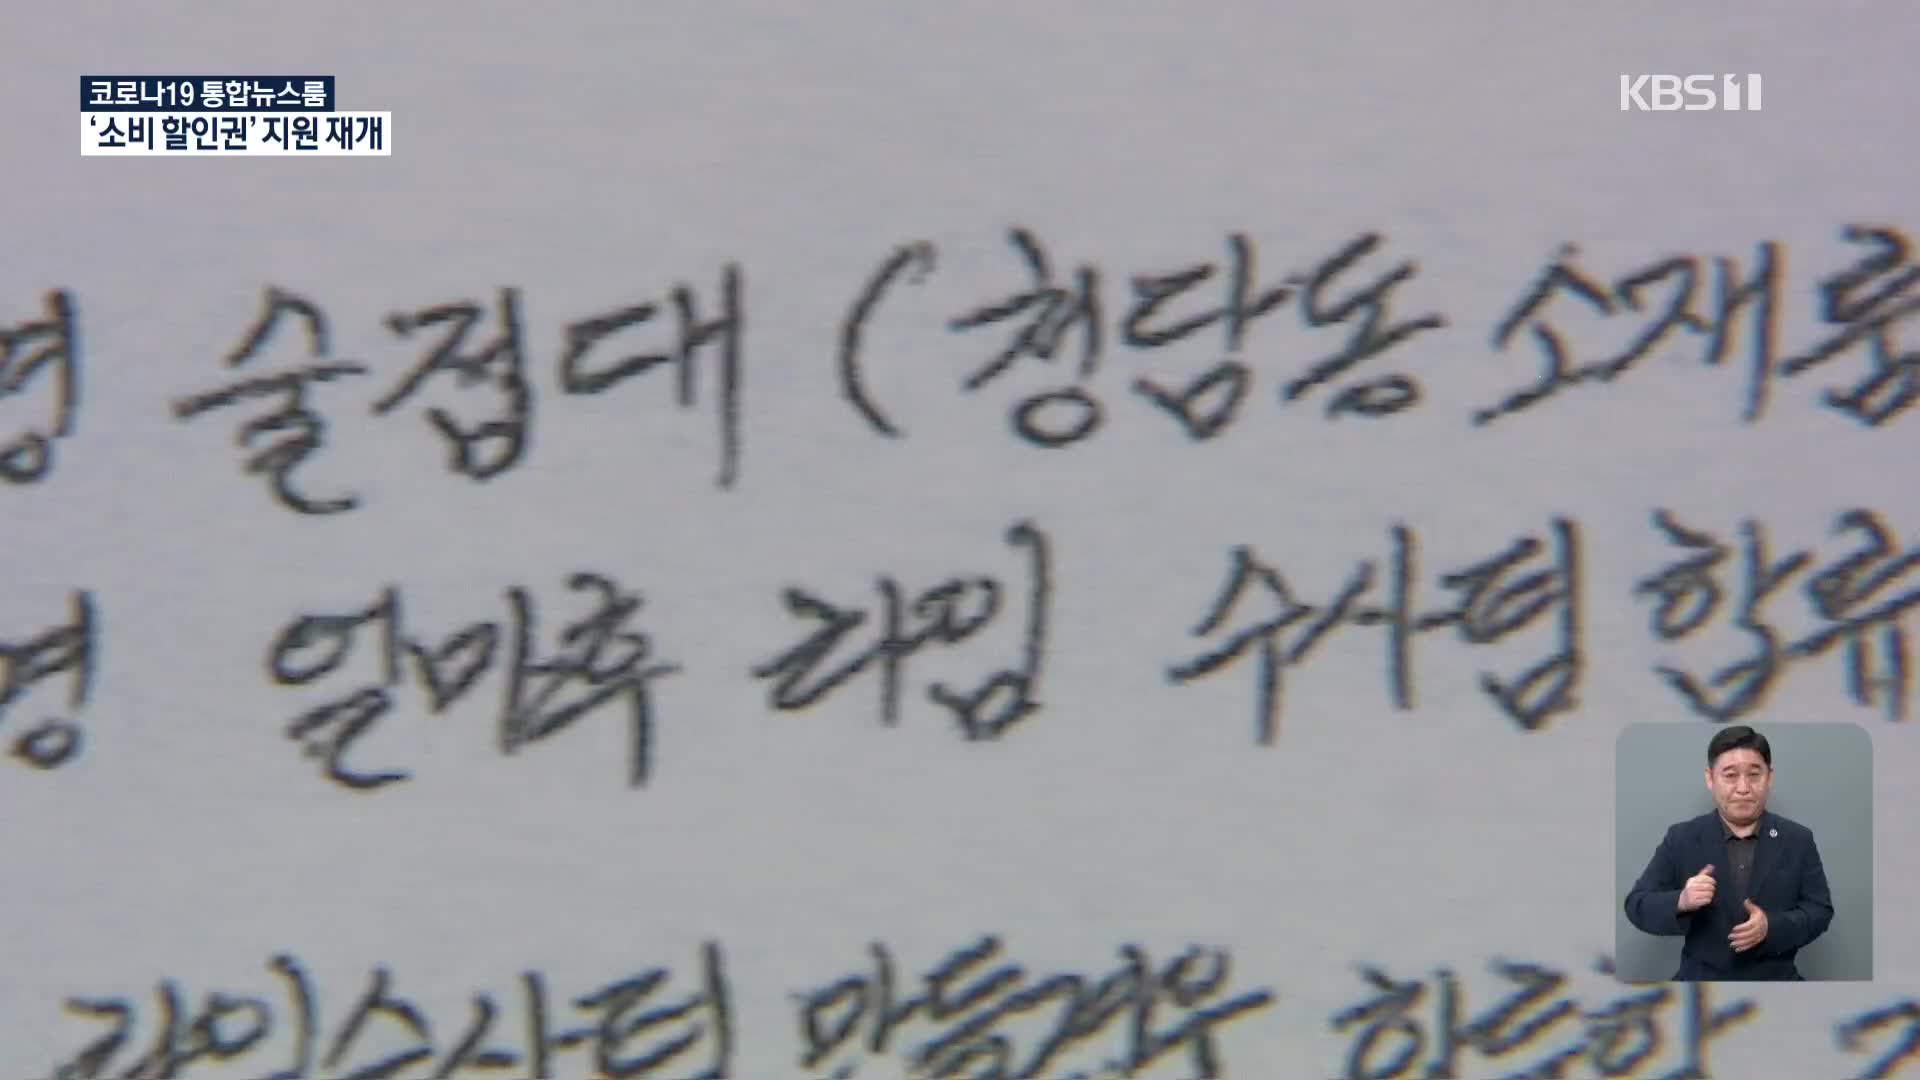 코로나19 통합뉴스룸
‘소비 할인권’ 지원 재개
KBS 1
술접대 (청담동 소재 룸
얼마후 라임 수사팀 합류
라임수사팀 만들경우 합류할